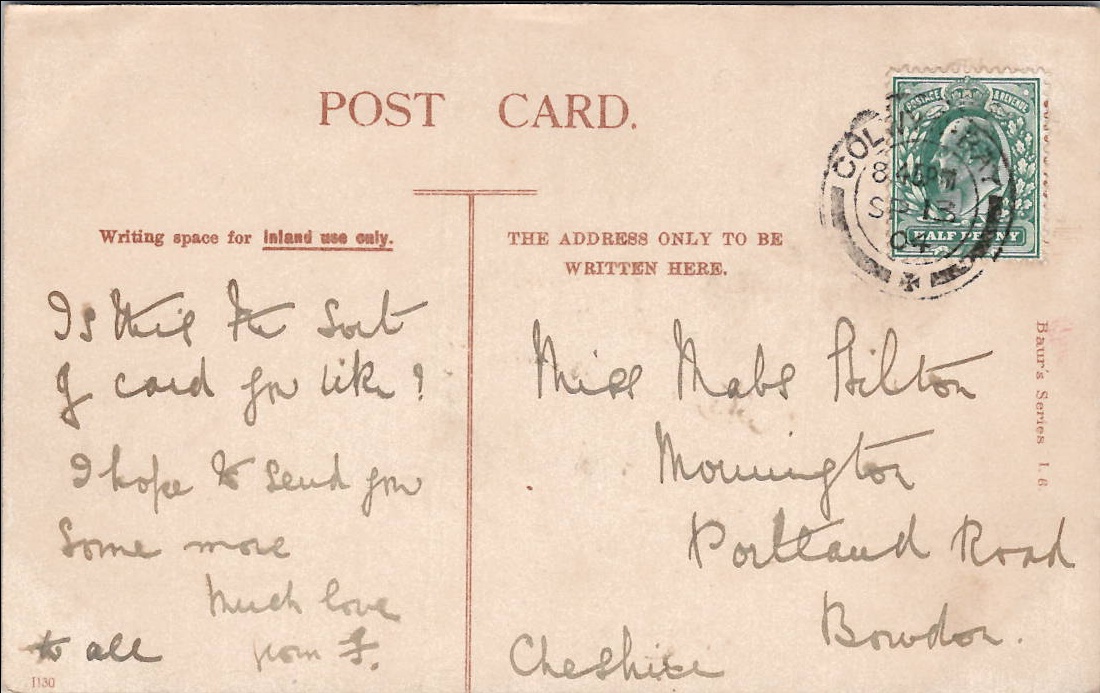 POST CARD.
POSTAGE & REVENUE
COLWYN BAY
8.45PM
SP 13
04
HALF PENNY
Writing space for inland use only.
THE ADDRESS ONLY TO BE
WRITTEN HERE.
Is this the sort
of card you like?
I hope to send you
some more
Much love
to all from F.
1130
Miss Mabs Hilton
Mornington
Portland Road
Bowdon.
Cheshire
Baur's Series 1.6